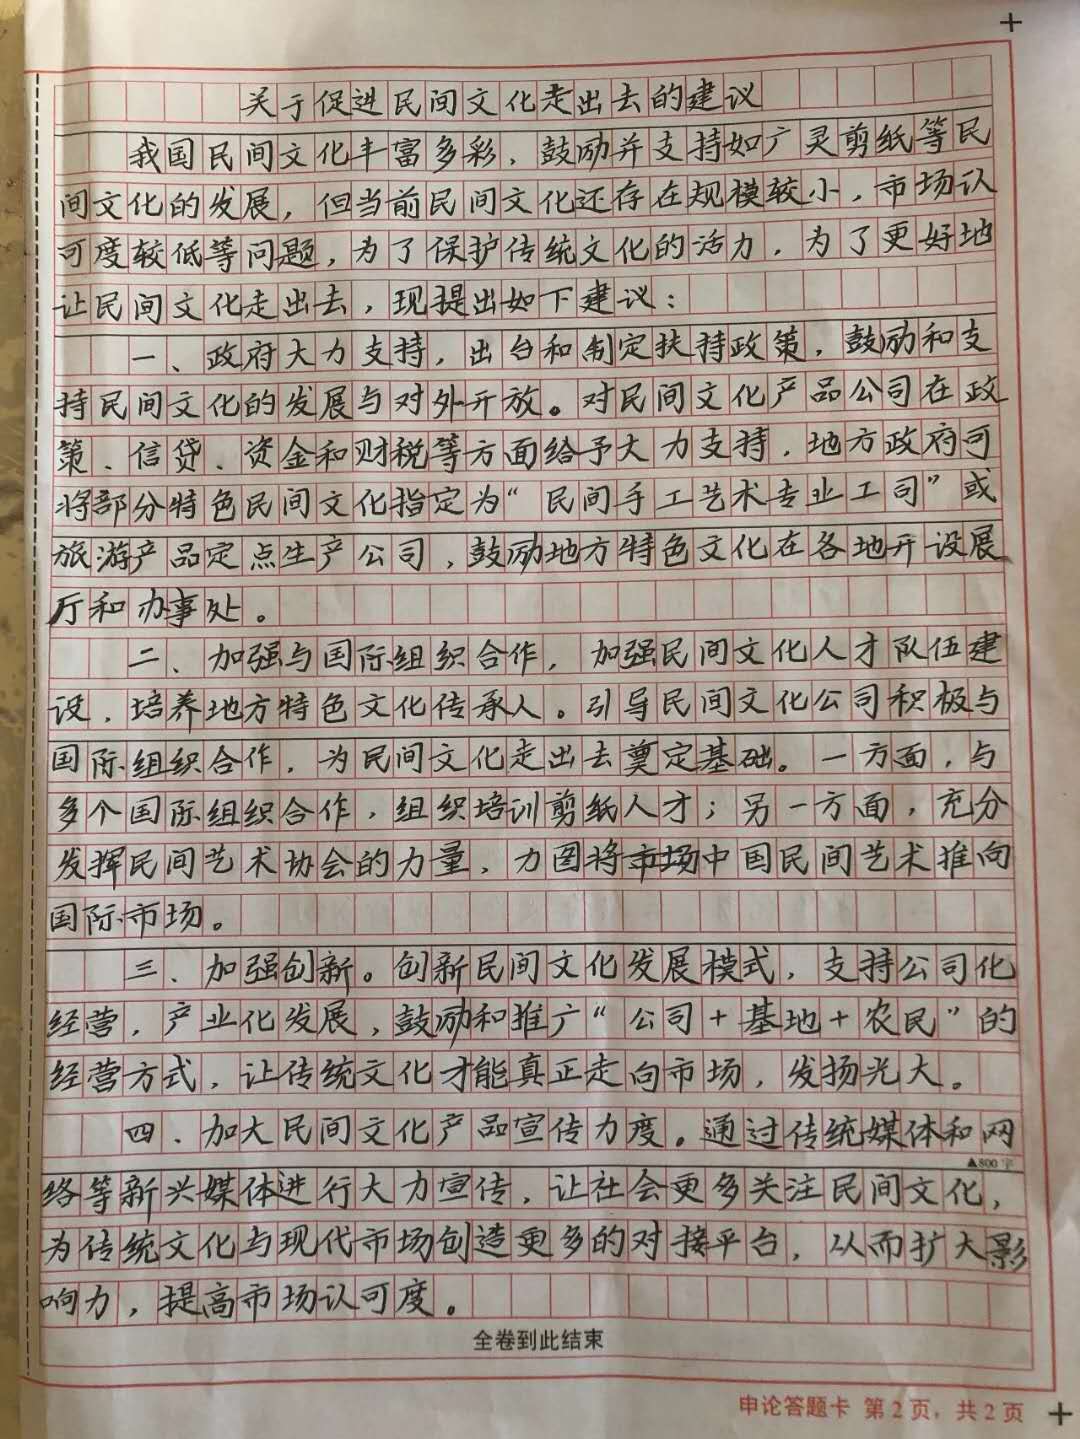 关于促进民间文化走出去的建议
我国民间文化丰富多彩，鼓励并支持如广灵剪纸等民
间文化的发展，但当前民间文化还存在规模较小，市场认
可度较低等问题，为了保护传统文化的活力，为了更好地
让民间文化走出去，现提出如下建议：
一、政府大力支持，出台和制定扶持政策，鼓励和支
持民间文化的发展与对外开放。对民间文化产品公司在政
策、信贷、资金和财税等方面给予大力支持，地方政府可
将部分特色民间文化指定为“民间手工艺术专业工司”或
旅游产品定点生产公司，鼓励地方特色文化在各地开设展
厅和办事处。
二、加强与国际组织合作，加强民间文化人才队伍建
设，培养地方特色文化传承人。引导民间文化公司积极与
国际组织合作，为民间文化走出去奠定基础。一方面，与
多个国际组织合作，组织培训剪纸人才；另一方面，充分
发挥民间艺术协会的力量，力图将市场中国民间艺术推向
国际市场。
三、加强创新。创新民间文化发展模式，支持公司化
经营，产业化发展，鼓励和推广“公司+基地+农民”的
经营方式，让传统文化才能真正走向市场，发扬光大。
四、加大民间文化产品宣传力度。通过传统媒体和网
▲800字
络等新兴媒体进行大力宣传，让社会更多关注民间文化，
为传统文化与现代市场创造更多的对接平台，从而扩大影
响力，提高市场认可度。
全卷到此结束
申论答题卡 第2页，共2页